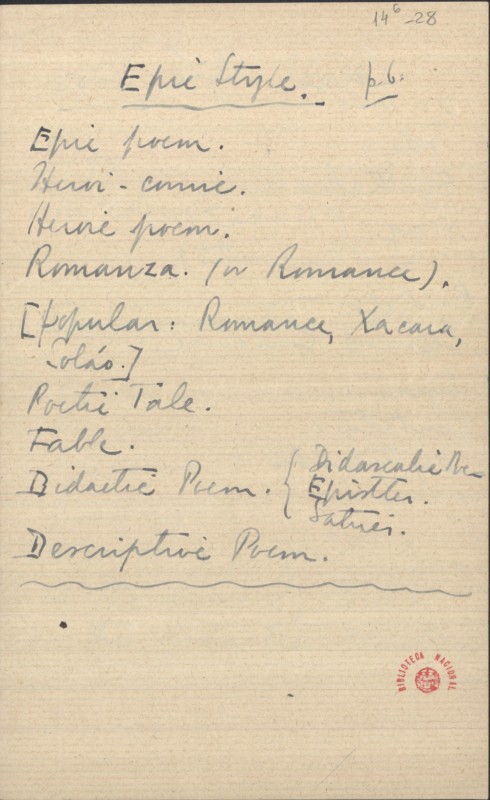 14⁶-28
Epic Style. p. 6.
Epic poem.
Heroi-comic.
Heroic poem.
Romanza. (or Romance).
[popular: Romance, Xacara,
Soláo.]
Poetic Tale.
Fable.
Didactic Poem. { Didascalic
Epistles.
Satires.
Descriptive Poem.
BIBLIOTECA NACIONAL